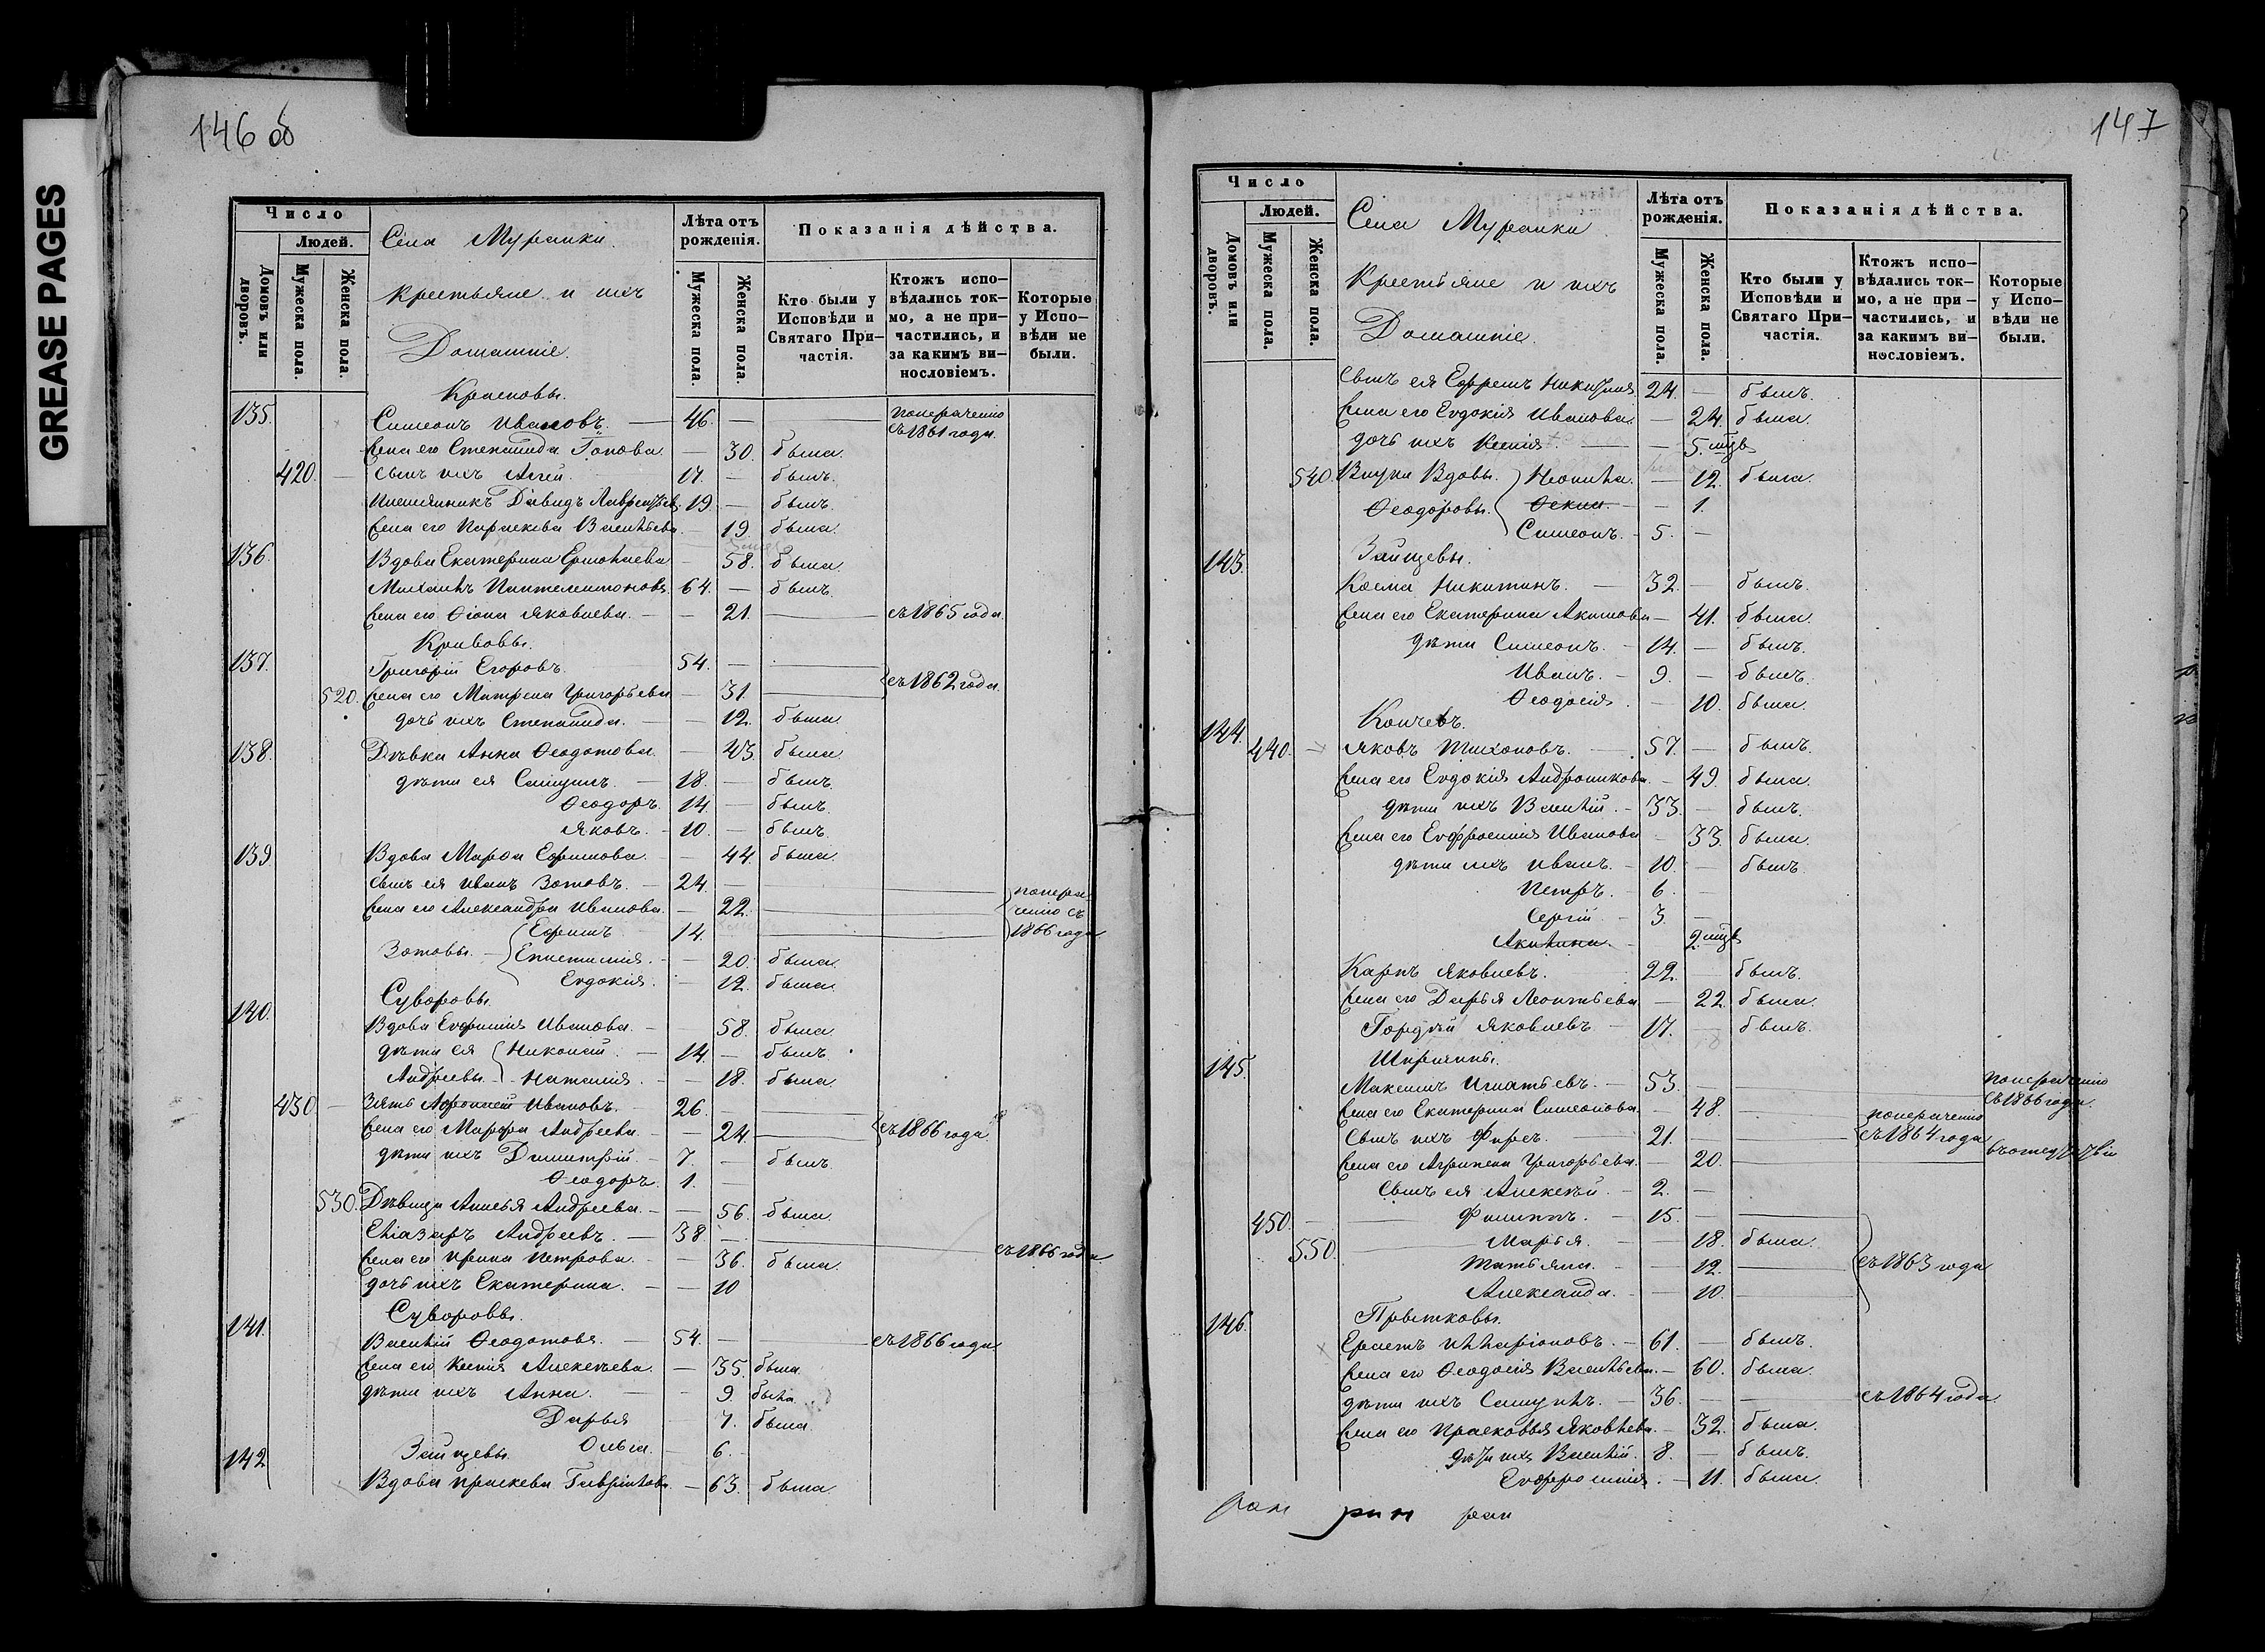 GREASE PAGES
146 об
Число
Людей.
Домовъ или дворовъ.
Мужеска пола.
Женска пола.
Села Муранки.
Крестьяне и ихъ
Домашніе.
Лѣта отъ рожденія.
Мужеска пола.
Женска пола.
Показанія дѣйства.
Кто были у Исповѣди и Святаго Причастія.
Ктожъ исповѣдались токмо, а не причастились, и за какимъ винословіемъ.
Которые у Исповѣди не были.
Красновы.
135. Симеонъ Ивановъ. 46. — съ 1861 года.
Жена его Степанида — 30. была.
420. — сынъ ихъ 17. — былъ.
Племянникъ Давидъ Лаврентьев. 19. — былъ.
Жена его Параскева Васильева — 19. была.
136. Вдова Екатерина Ермолаева — 58. была.
Михаилъ Пантелеимоновъ 64. — былъ.
Жена его Яковлева. — 21. съ 1865 года.
Кривовы.
137. Григорій Егоровъ. 54. —
520. Жена его Матрена Григорьева — 31. съ 1862 года.
дочь ихъ Степанида. — 12. была.
138. Дѣвка Анна Ѳеодотова. — 43. была.
дѣти ея Самуилъ. — 18. — былъ.
Ѳеодоръ. 14. — былъ.
Яковъ. 10. — былъ.
139. Вдова Марѳа Ефимова. — 44. была.
сынъ ея Иванъ Зотовъ. — 24. —
Жена его Александра Иванова. — 22. съ
Ефимъ 14. 1866 года
Зотовы. Епистимія. — 20. была.
Евдокія. — 12. была.
Суворовы.
140. Вдова Евфимія Иванова. — 58. была.
дѣти ея Николай. — 14. — былъ.
Андреевы. Наталія. — 18. была.
430. — Зять Ивановъ. 26. —
Жена его Марѳа Андреева. — 24. съ 1866 года
дѣти ихъ Димитрій. 7. — былъ.
Ѳеодоръ. 1. —
530. Дѣвица Андреева. — 56. была.
Андреевъ. — 38 — съ 1866 года
Жена его Ирина Петрова. — 36. была.
дочь ихъ Екатерина. — 10
Суворовы.
141. Василій Ѳеодотовъ. — 54. — съ 1866 года
Жена его Ксенія Алексѣева. — 35. была.
дѣти ихъ Анна. — 9. была
Дарья 7. была.
Ольга. — 6. —
142. Зайцевы
Вдова Праскева Гаврилова. — 63. была.
147
Число
Людей.
Домовъ или дворовъ.
Мужеска пола.
Женска пола.
Села Муранки
Крестьяне и ихъ
Домашніе.
Лѣта отъ рожденія.
Мужеска пола.
Женска пола.
Показанія дѣйства.
Кто были у Исповѣди и Святаго Причастія.
Ктожъ исповѣдались токмо, а не причастились, и за какимъ винословіемъ.
Которые у Исповѣди не были.
Сынъ ея Ефремъ Никитинъ 24. — былъ.
Жена его Евдокія Иванова. — 24. была.
дочь ихъ Ксенія. — 5. мцв
540. Внуки Вдовы Неонила. — 12. была.
Ѳеодоровы. — 1.
Симеонъ. — 5. —
143. Зайцевы.
Косма Никитинъ. — 32. — былъ.
Жена его Екатерина Акимова — 41. была.
дѣти Симеонъ. — 14. — былъ.
Иванъ. — 9. — былъ.
Ѳеодосія. — 10. была.
144. Кончевъ.
440. — Яковъ Тихоновъ. — 57. — былъ.
Жена его Евдокія Андроникова. — 49. была.
дѣти ихъ Василій. — 33. — былъ.
Жена его Евфросинія Иванова — 33. была.
дѣти ихъ Иванъ. — 10. — былъ.
Петръ. — 6. —
Сергій — 3. —
Акилина. — 2. мцв
Карпъ Яковлевъ. 22. — былъ.
Жена его Дарья Леонтьева — 22. была.
Гордѣй Яковлевъ — 17. — былъ.
145. Ширяевы.
Максимъ Игнатьевъ. — 53. — съ 1866 года.
Жена его Екатерина Симеонова. — 48. —
Сынъ ихъ Фирсъ. — 21. — съ 1864 года
Жена его Агрипена Григорьева. — 20. въ отсутствіи
Сынъ ея Алексѣй. — 2. —
450. — Филиппъ. — 15. —
550. Марья. — 18. была.
Татьяна. — 12. съ 1863 года
Александа. — 10.
146. Прытковы.
Ерастъ Илларіоновъ. — 61. — былъ.
Жена его Ѳеодосія Васильева. — 60. была.
дѣти ихъ Самуилъ. — 36. — съ 1864 года
Жена его Прасковья Яковлева. — 32. была.
дѣти ихъ Василій. 8. — былъ.
Евфросинія. — 11. была.